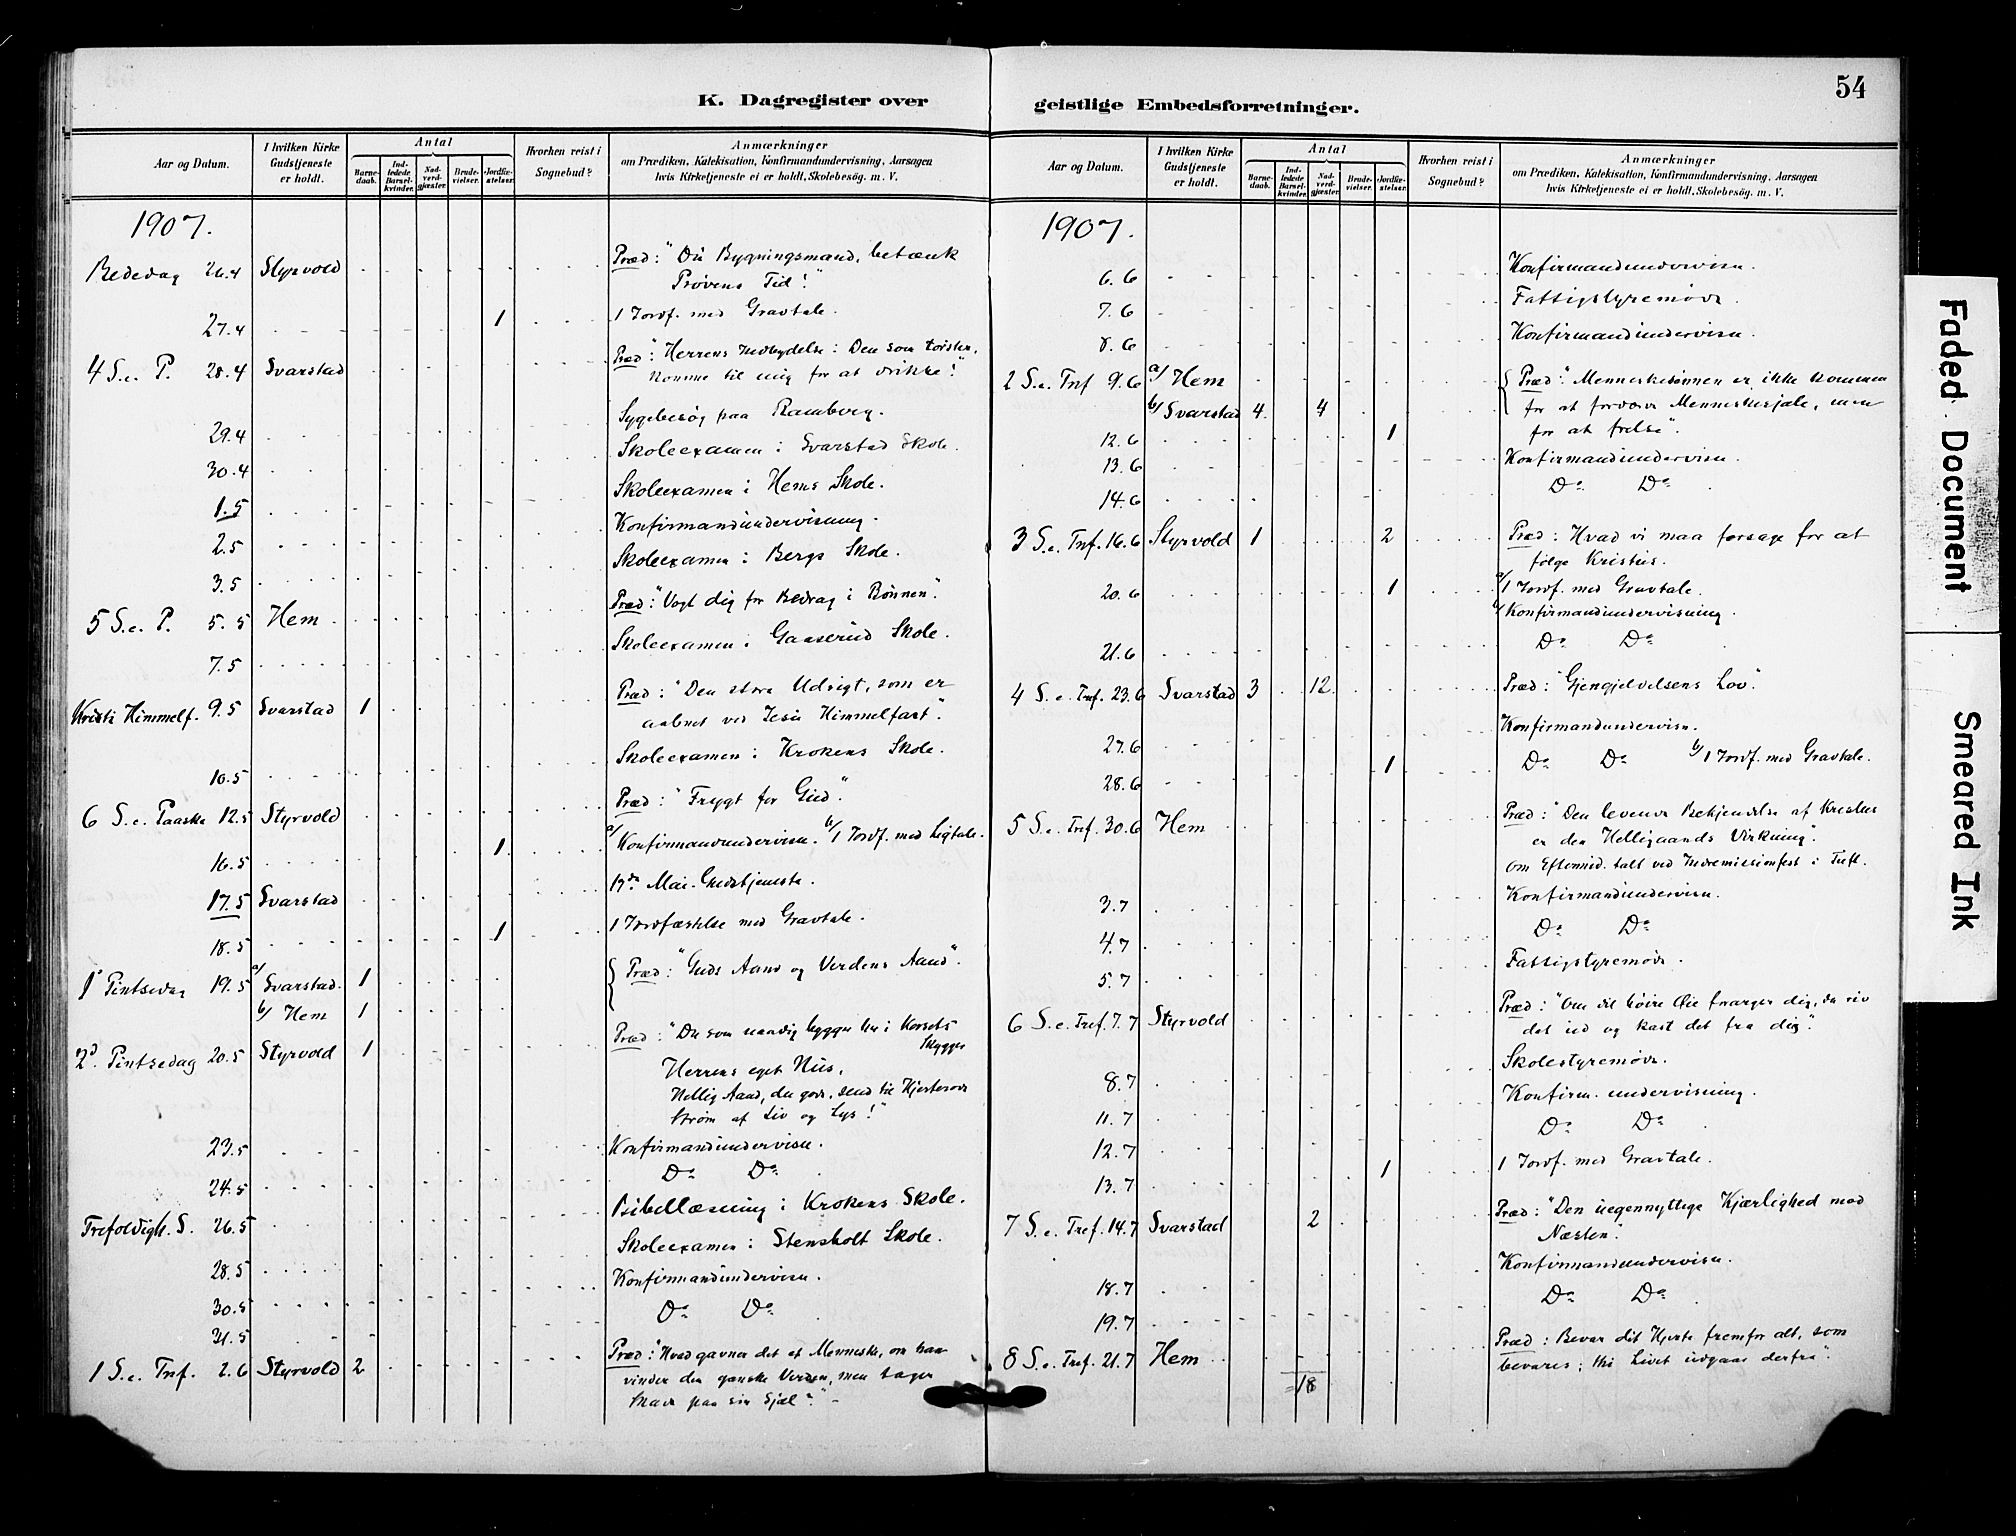 54
K. Dagregister over
geistlige Embedsforretninger.
Aar og Datum.
I hvilken Kirke Gudstjeneste er holdt.
Antal
Barnedaab.
Indledede Barselkvinder.
Nadverdgjæster.
Brudevielser.
Jordfæstelser.
Hvorhen reist i Sognebud?
Anmærkninger
om Prædiken, Katekisation, Konfirmandundervisning, Aarsagen
hvis Kirketjeneste ei er holdt, Skolebesøg. m. V.
1907.
Bededag 26.4 Styrvold Præd: "Du Bygningsmand, betænk
Prøvens Tid!"
27.4 1 1 Jordf. med Gravtale.
4 S.e. P. 28.4 Svarstad Præd: "Herrens Indbydelse: Den som tørster,
komme til mig for at drikke!"
Sygebesøg paa Ramberg.
29.4 Skoleexamen i Svarstad Skole.
30.4 Skoleexamen i Hems Skole.
1.5 Konfirmandundervisning.
2.5 Skoleexamen i Bergs Skole.
3.5
5 S.e. P. 5.5 Hem Præd: "Vogt dig for Bedrag i Bønnen".
7.5 Skoleexamen i Gaaserud Skole.
Kristi Himmelf. 9.5 Svarstad 1 Præd: "Den store Udsigt, som er
aabnet ved Jesu Himmelfart".
10.5 Skoleexamen i Krokens Skole.
6 S.e. Paaske 12.5 Styrvold Præd: "Frygt for Gud".
16.5 1 a/ Konfirmandundervisn. b/ 1 Jordf. med Ligtale.
17.5 Svarstad 17de Mai-Gudstjeneste.
18.5 1 1 Jordfæstelse med Gravtale.
1ste Pintsedag 19.5 a/ Svarstad. 1 Præd: "Guds Aand og Verdens Aand".
b/ Hem 1
2d. Pintsedag 20.5 Styrvold 1 Præd: "Du som naadig bygger her i Korsets
Skygger
Herrens eget Hus,
Hellig Aand, du gode, send til Hjerterode
Strøm af Liv og Lys!"
23.5 Konfirmandundervisn.
24.5 Do Do
Trefoldigh. S. 26.5 Bibellæsning i Krokens Skole.
28.5 Skoleexamen i Stensholt Skole.
30.5 Konfirmandundervisn.
31.5 Do Do
1 S.e. Tref. 2.6 Styrvold 2 Præd: "Hvad gavner det et Menneske, om han
vinder den ganske Verden, men tager
Skade paa sin Sjæl?"
Aar og Datum.
I hvilken Kirke Gudstjeneste er holdt.
Antal
Barnedaab.
Indledede Barselkvinder.
Nadverdgjæster.
Brudevielser.
Jordfæstelser.
Hvorhen reist i Sognebud?
Anmærkninger
om Prædiken, Katekisation, Konfirmandundervisning, Aarsagen
hvis Kirketjeneste ei er holdt, Skolebesøg. m. V.
1907.
6.6 Konfirmandundervisn.
7.6 Fattigstyremøde.
8.6 Konfirmandundervisn.
2 S.e. Tref 9.6 a/ Hem Præd: "Menneskesønnen er ikke kommen
b/ Svarstad 4 4 for at fordærve Menneskesjæle, men
for at frelse".
12.6 1
13.6 Konfirmandundervisn.
14.6 Do Do
3 S.e. Tref. 16.6 Styrvold 1 2 Præd: Hvad vi maa forsage for at
følge Kristus.
20.6 1 a/ 1 Jordf. med Gravtale.
b/ Konfirmandundervisning.
21.6 Do Do
4 S.e. Tref. 23.6 Svarstad 3 12 Præd: "Gjengjeldelsens Lov".
27.6 Konfirmandundervisn.
28.6 1 Do Do b/ 1 Jordf. med Gravtale.
5 S.e. Tref. 30.6 Hem Præd: "Den levende Bekjendelse af Kristus
er den Helligaands Virkning".
Om Eftermid. talt ved Indremissionsfest i Tuft.
3.7 Konfirmandundervisn.
4.7 Do Do
5.7 Fattigstyremøde.
6 S.e. Tref. 7.7 Styrvold Præd: "Om dit høire Øie forarger dig, da riv
det ud og kast det fra dig".
8.7 Skolestyremøde.
11.7 Konfirm. undervisning.
12.7 Do Do
13.7 1 1 Jordf. med Gravtale.
7 S.e. Tref. 14.7 Svarstad 2 Præd: "Den uegennyttige Kjærlighed mod
Næsten".
18.7 Konfirmandundervisn.
19.7 Do Do
8 S.e. Tref. 21.7 Hem Præd: Bevar dit Hjerte fremfor alt, som
bevares; thi Livet udgaar derfra".
=18
Faded Document
Smeared Ink